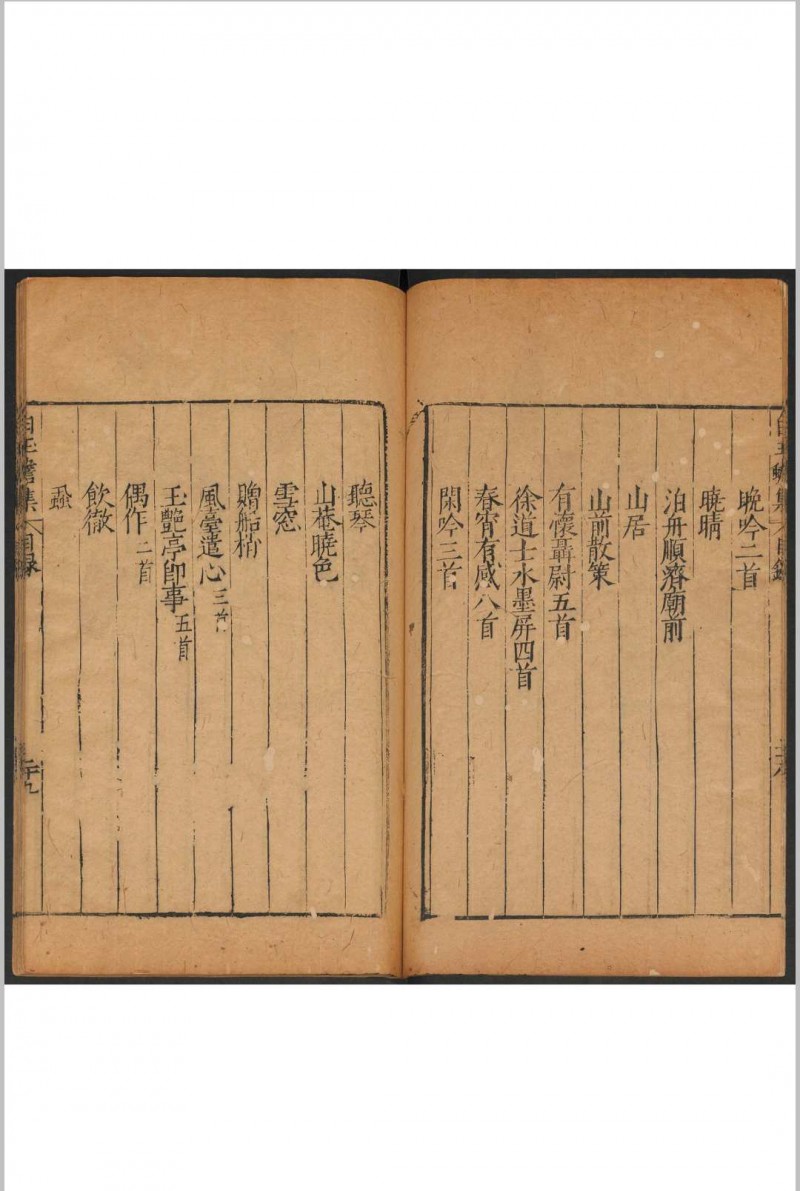 晚吟二首
曉晴
泊舟順濟廟前
山居
山前散策
有懷聶尉五首
徐道士水墨屏四首
春宵有感八首
閑吟三首
聽琴
山菴曉色
雪窓
贈船梢
風臺遣心三首
玉艷亭即事五首
偶作二首
飲徹
白玉蟾集 目錄
二十九